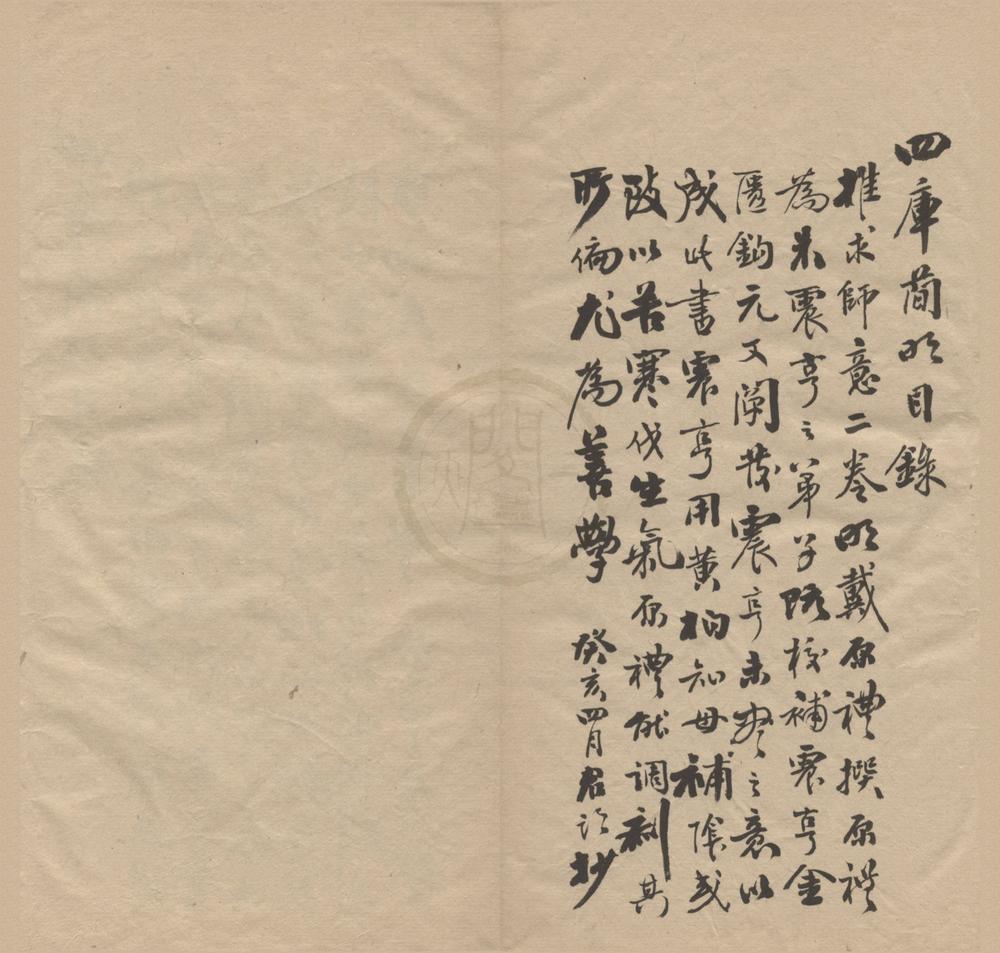 四庫簡明目錄
推求師意二卷明戴原禮撰原禮
為朱震亨之弟子既校補震亨金
匱鈎元又闡發震亨未盡之意以
成此書震亨用黃柏知母補陰或
致以苦寒伐生氣原禮能調劑其
所偏尤為善學 癸亥四月君誼抄